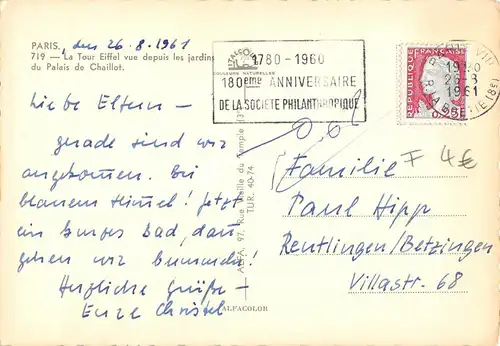 PARIS, den 26.8.1961
719 — La Tour Eiffel vue depuis les jardins
du Palais de Chaillot.
Liebe Eltern –
gerade sind wir
angekommen. Bei
blauem Himmel! Jetzt
ein kurzes Bad, dann
gehen wir bummeln!
Herzliche Grüße –
Eure Christel
ALFACOLOR
COULEURS NATURELLES
97, Rue Vieille du Temple (3e)
TUR. 40-74
ALFACOLOR
1780 - 1960
180ème ANNIVERSAIRE
DE LA SOCIETE PHILANTHROPIQUE
REPUBLIQUE FRANÇAISE
0,25
26-8
1961
F 4€
Familie
Paul Hipp
Reutlingen/Betzingen
Villastr. 68